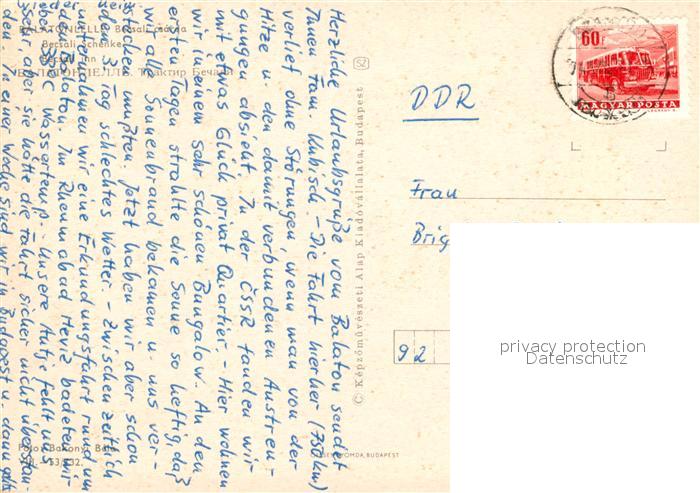 BALATONLELLE. Becsali csárda
Becsali Schenke
Becsali inn
БАЛАТОНЛЕЛЛЕ. Трактир Бечали
Herzliche Urlaubsgrüße vom Balaton sendet
Ihnen Fam. Kubisch. - Die Fahrt hierher (780 km)
verlief ohne Störungen, wenn man von der
Hitze u. den damit verbundenen Anstren-
gungen absieht. In der ČSSR fanden wir
mit etwas Glück privat Quartier. - Hier wohnen
wir in einem sehr schönen Bungalow. An den
ersten Tagen strahlte die Sonne so heftig, daß
wir alle Sonnenbrand bekamen u. uns ver-
stecken mußten. Jetzt haben wir aber schon
den 3. Tag schlechtes Wetter. - Zwischenzeitlich
unternahmen wir eine Erkundungsfahrt rund um
den Balaton. Im Rheumabad Heviz badeten wir
bei 33°C Wassertemp. Unsere Antj fehlt uns
sehr, aber sie hätte die Fahrt sicher nicht überstan-
den. In einer Woche sind wir in Budapest u. dann geht's
wieder heim.
Foto: Bakonyi Béla
© Képzőművészeti Alap Kiadóvállalata, Budapest
SZ
OFFSETNYOMDA, BUDAPEST
60f
MAGYAR POSTA
DDR
Frau
Brig
92
privacy protection
Datenschutz